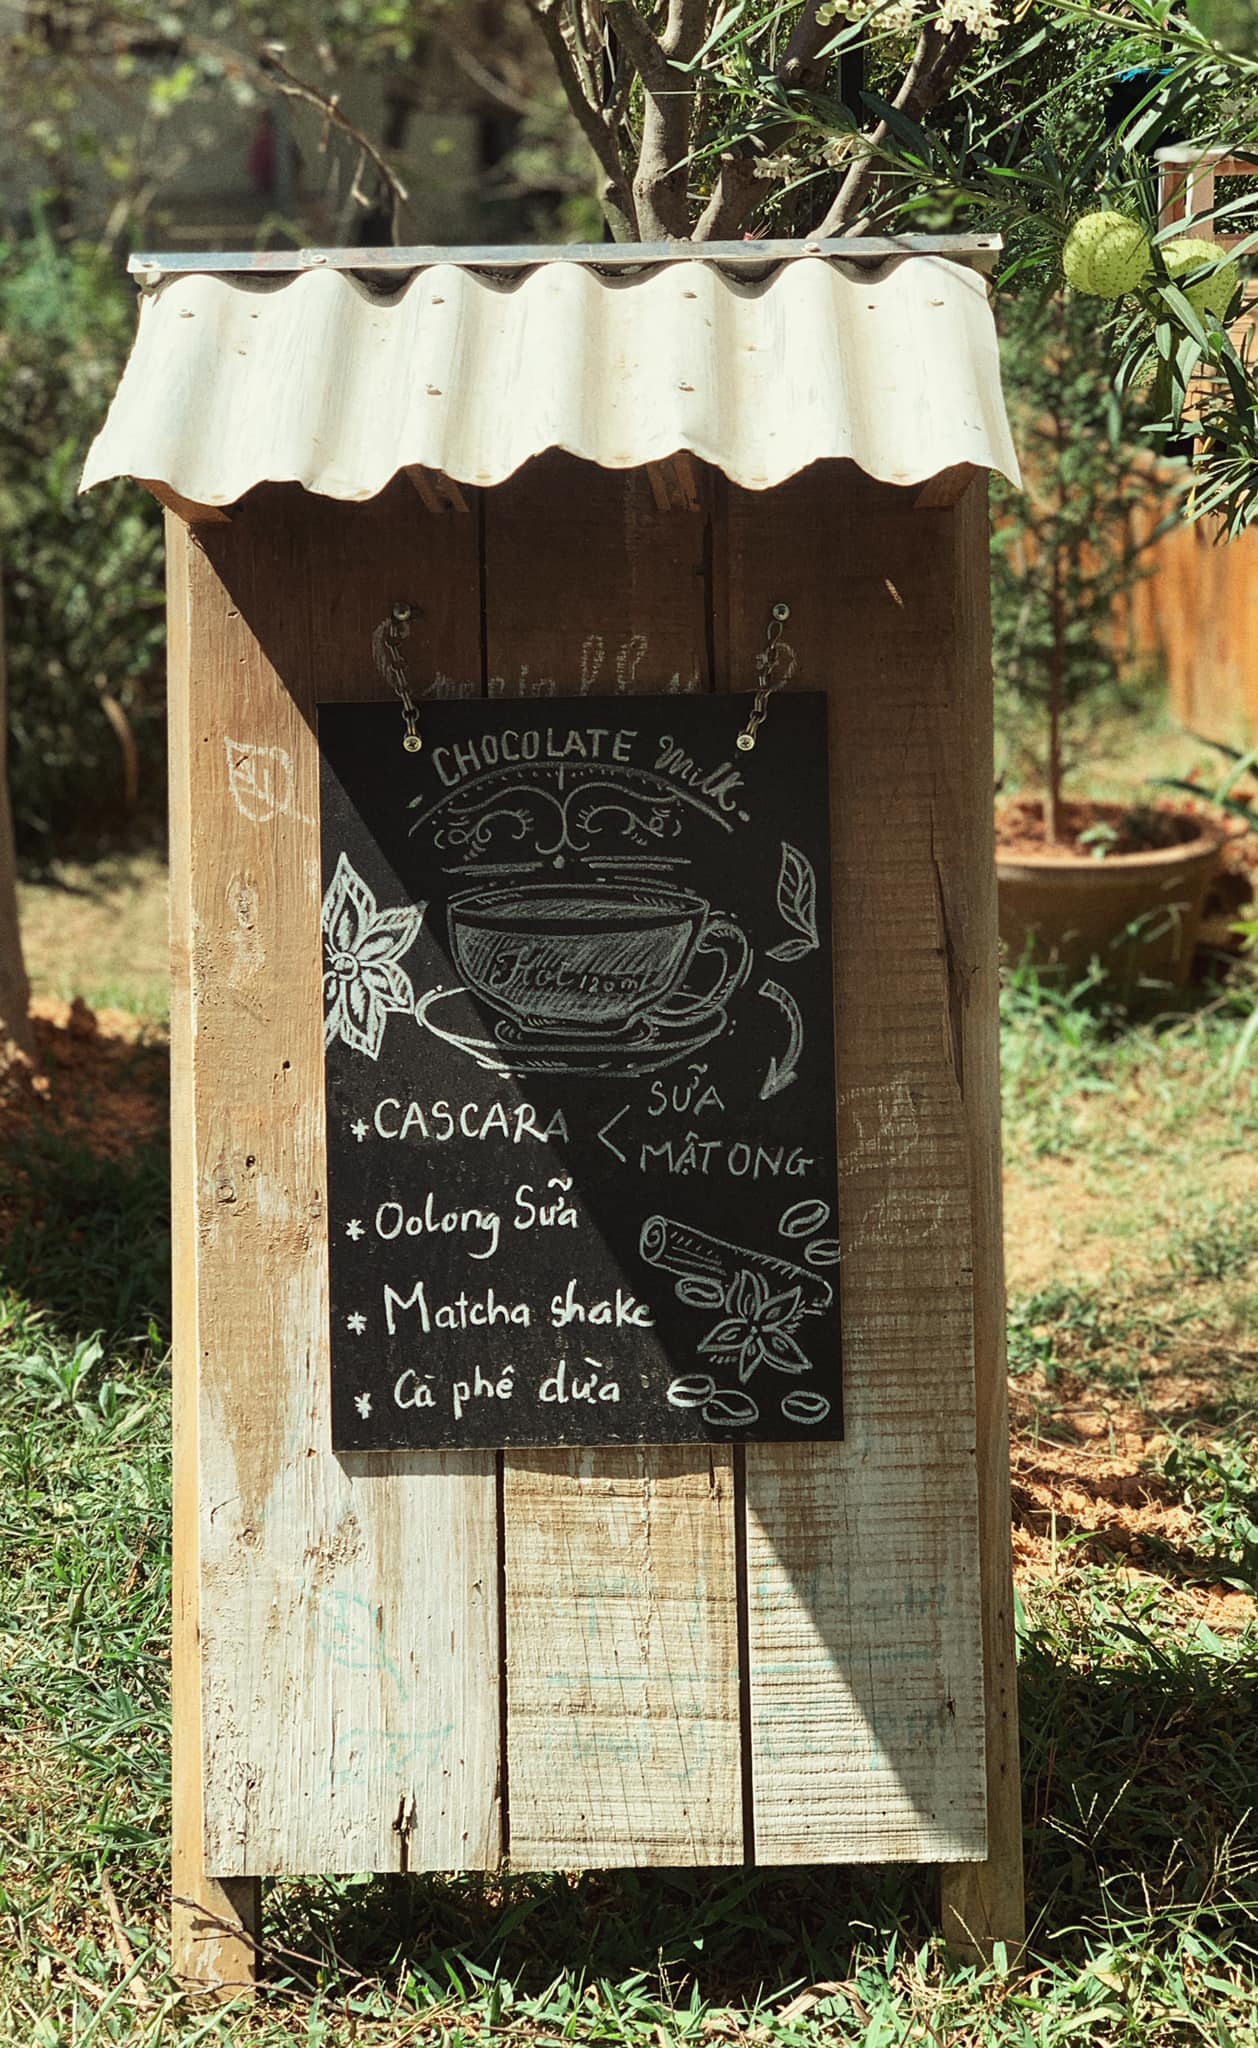 CHOCOLATE Milk.
Hot 120ml
* CASCARA < SỮA
MẬT ONG
* Oolong Sữa
* Matcha shake
* Cà phê dừa